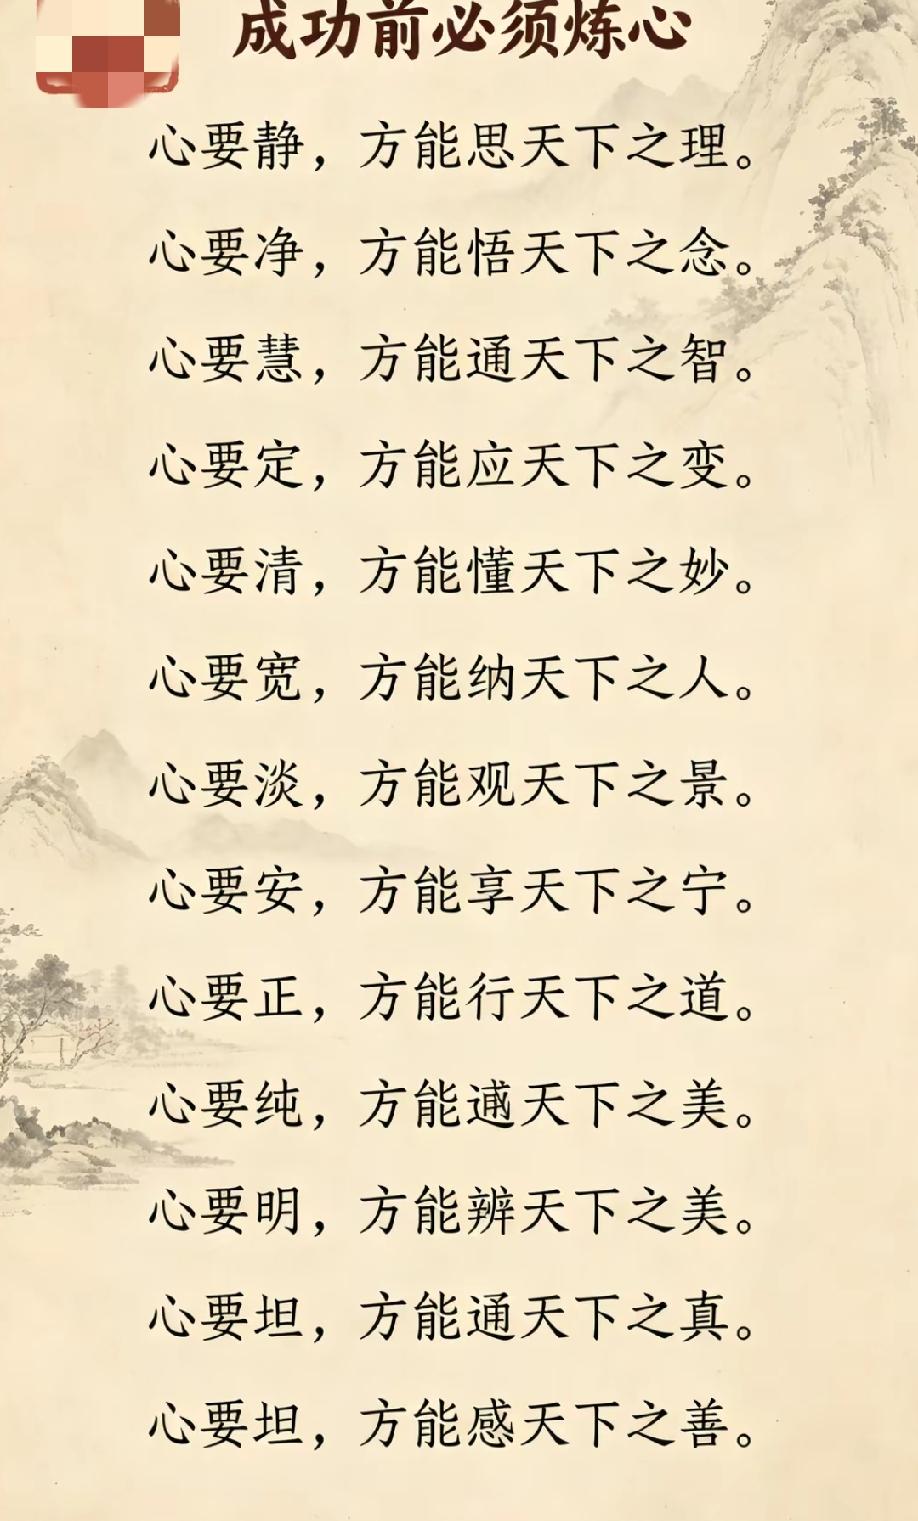 成功前必须炼心
心要静，方能思天下之理。
心要净，方能悟天下之念。
心要慧，方能通天下之智。
心要定，方能应天下之变。
心要清，方能懂天下之妙。
心要宽，方能纳天下之人。
心要淡，方能观天下之景。
心要安，方能享天下之宁。
心要正，方能行天下之道。
心要纯，方能天下之美。
心要明，方能辨天下之美。
心要坦，方能通天下之真。
心要坦，方能感天下之善。